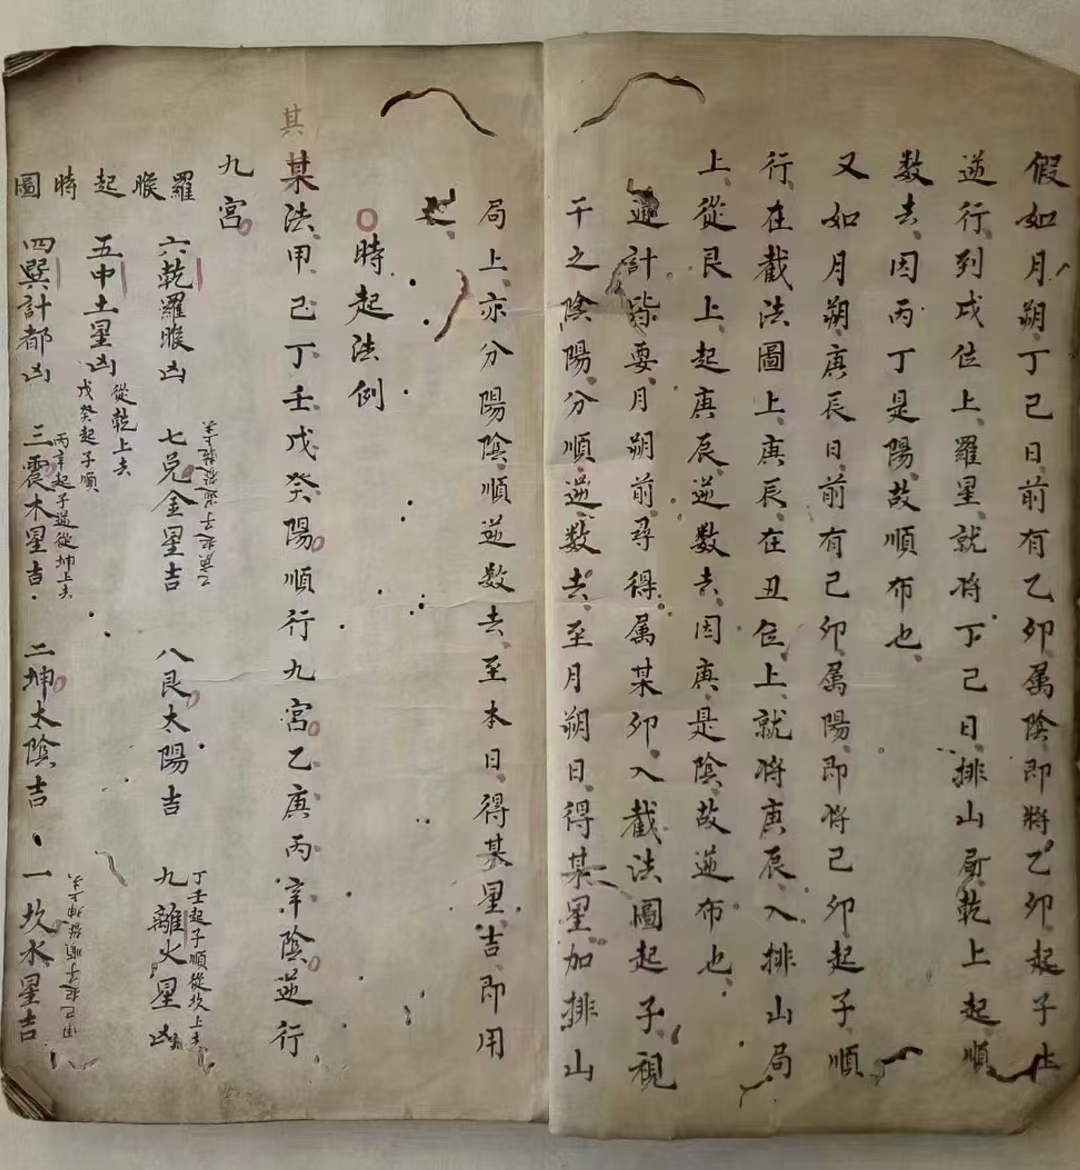 假如月朔、丁己日、前有乙卯、属陰、即將乙卯起子上
逆行、到戌位上、羅星、就将丁己日、排山局、乾上起順
数去、因丙丁是陽、故順布也、
又如月朔、庚辰日、前有己卯、属陽、即将己卯起子、順
行、在截法圖上、庚辰、在丑位上、就将庚辰、入排山局
上、從艮上、起庚辰、逆数去、因庚是陰、故逆布也、
計皆要、月朔前尋得属某卯、入截法圖起子、視
干之陰陽、分順逆、数去、至月朔日、得某星加排山
局上、亦分陽陰、順逆数去、至本日、得某星、吉、即用
之、
時起法例
其
某法甲己丁壬戊癸陽順行九宮乙庚丙辛陰逆行
九宮
羅睺起時圖
六乾羅睺凶
七兑金星吉
乙庚起子逆從乾上去
八艮太陽吉
九離火星凶
丁壬起子順從坎上去
五中土星凶
從乾上去
戊癸起子順
四巽計都凶
三震木星吉
丙辛起子逆從坤上去
二坤太陰吉
一坎水星吉
甲己起子順從坤上去